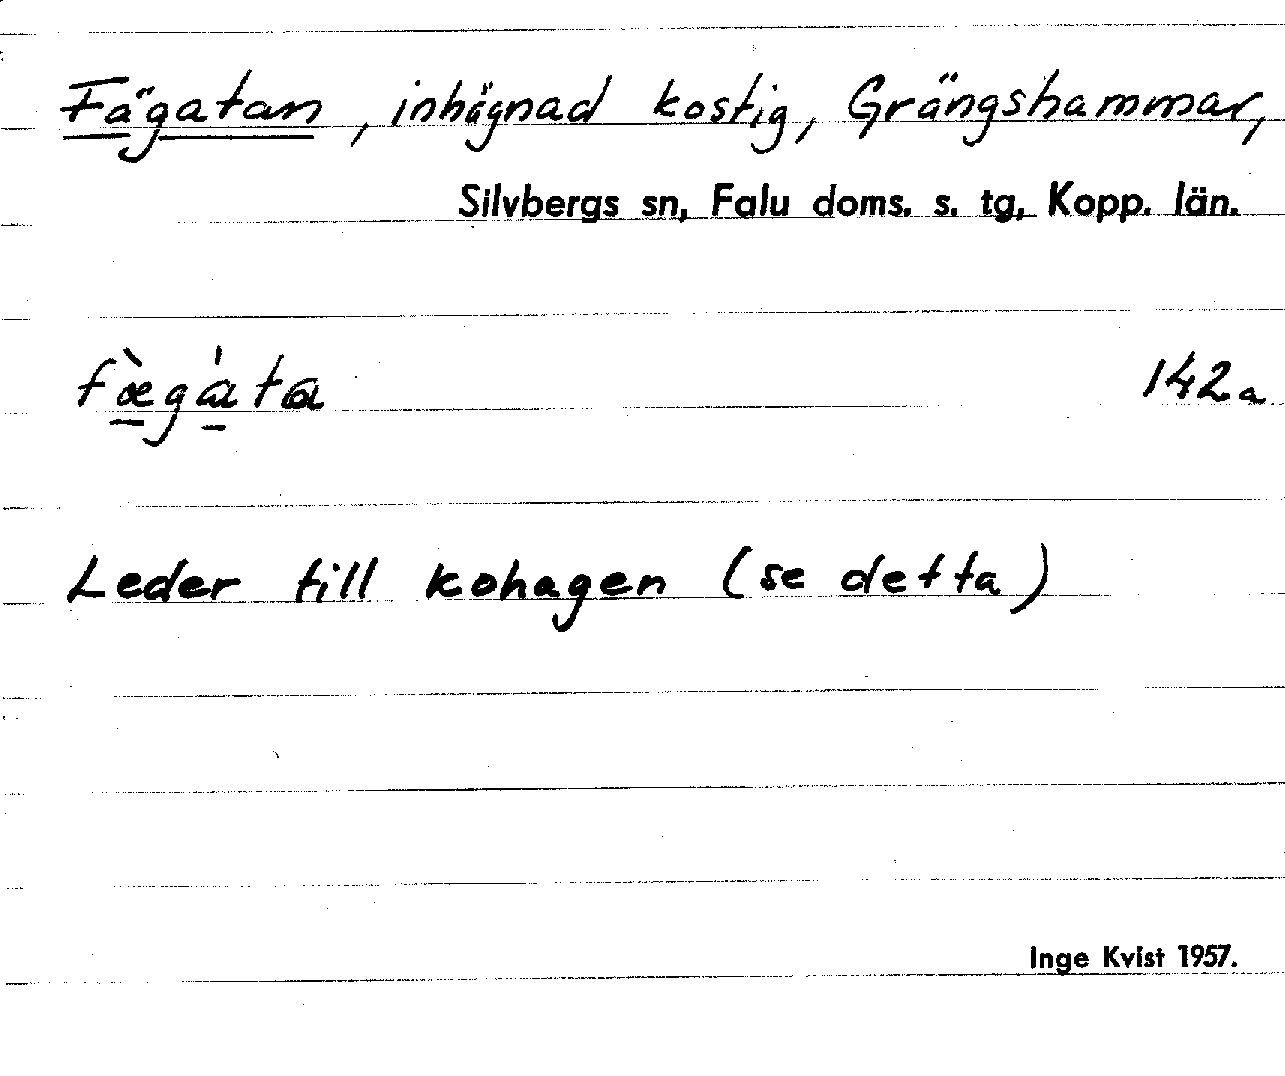 Fägatan, inhägnad kostig, Grängshammar,
Silvbergs sn, Falu doms. s. tg, Kopp. län.
fæ̠̀ga̠̍ta 142a
Leder till kohagen (se detta)
Inge Kvist 1957.